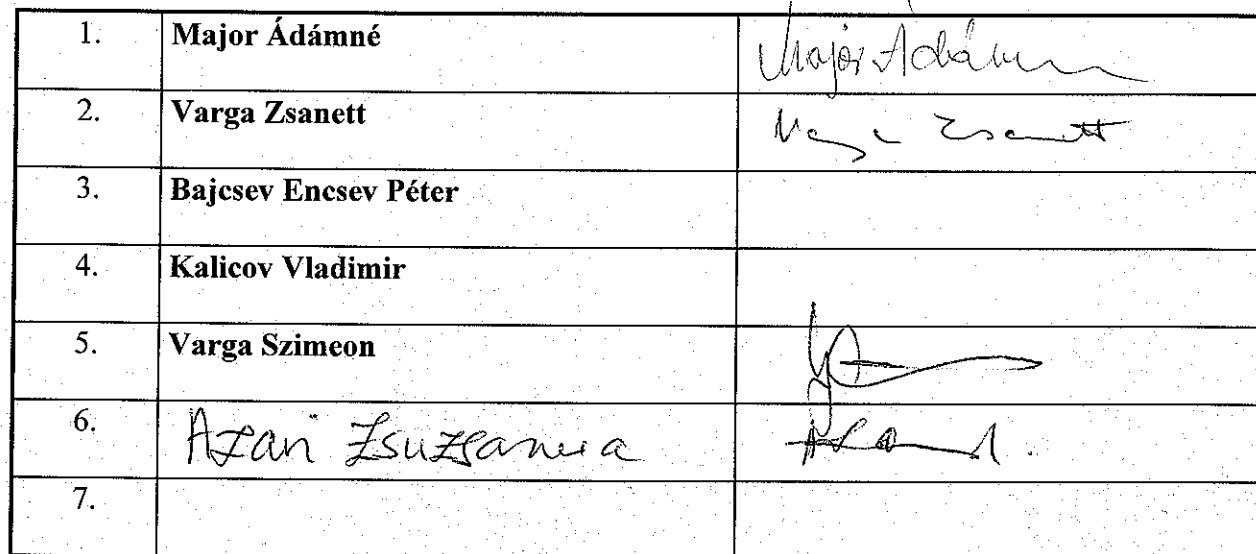 1. Major Ádámné Major Ádámné
2. Varga Zsanett Varga Zsanett
3. Bajcsev Encsev Péter
4. Kalicov Vladimir
5. Varga Szimeon
6. Azari Zsuzsanna
7.